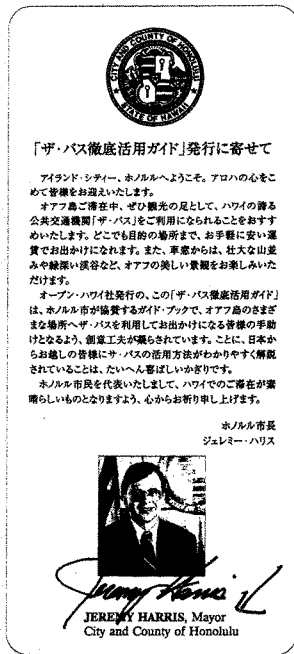 CITY AND COUNTY OF HONOLULU
STATE OF HAWAII
「ザ・バス徹底活用ガイド」発行に寄せて
アイランド・シティー、ホノルルへようこそ。アロハの心をこ
めて皆様をお迎えいたします。
オアフ島ご滞在中、ぜひ観光の足として、ハワイの誇る
公共交通機関「ザ・バス」をご利用になられることをおすす
めいたします。どこでも目的の場所まで、お手軽に安い運
賃でお出かけになれます。また、車窓からは、壮大な山並
みや緑深い渓谷など、オアフの美しい景観をお楽しみいた
だけます。
オープン・ハワイ社発行の、この「ザ・バス徹底活用ガイド」
は、ホノルル市が協賛するガイド・ブックで、オアフ島のさまざ
まな場所へザ・バスを利用してお出かけになる皆様の手助
けとなるよう、創意工夫が凝らされています。ことに、日本か
らお越しの皆様にザ・バスの活用方法がわかりやすく解説
されていることは、たいへん喜ばしいかぎりです。
ホノルル市民を代表いたしまして、ハワイでのご滞在が素
晴らしいものとなりますよう、心からお祈り申し上げます。
ホノルル市長
ジェレミー・ハリス
Jeremy Harris
JEREMY HARRIS, Mayor
City and County of Honolulu